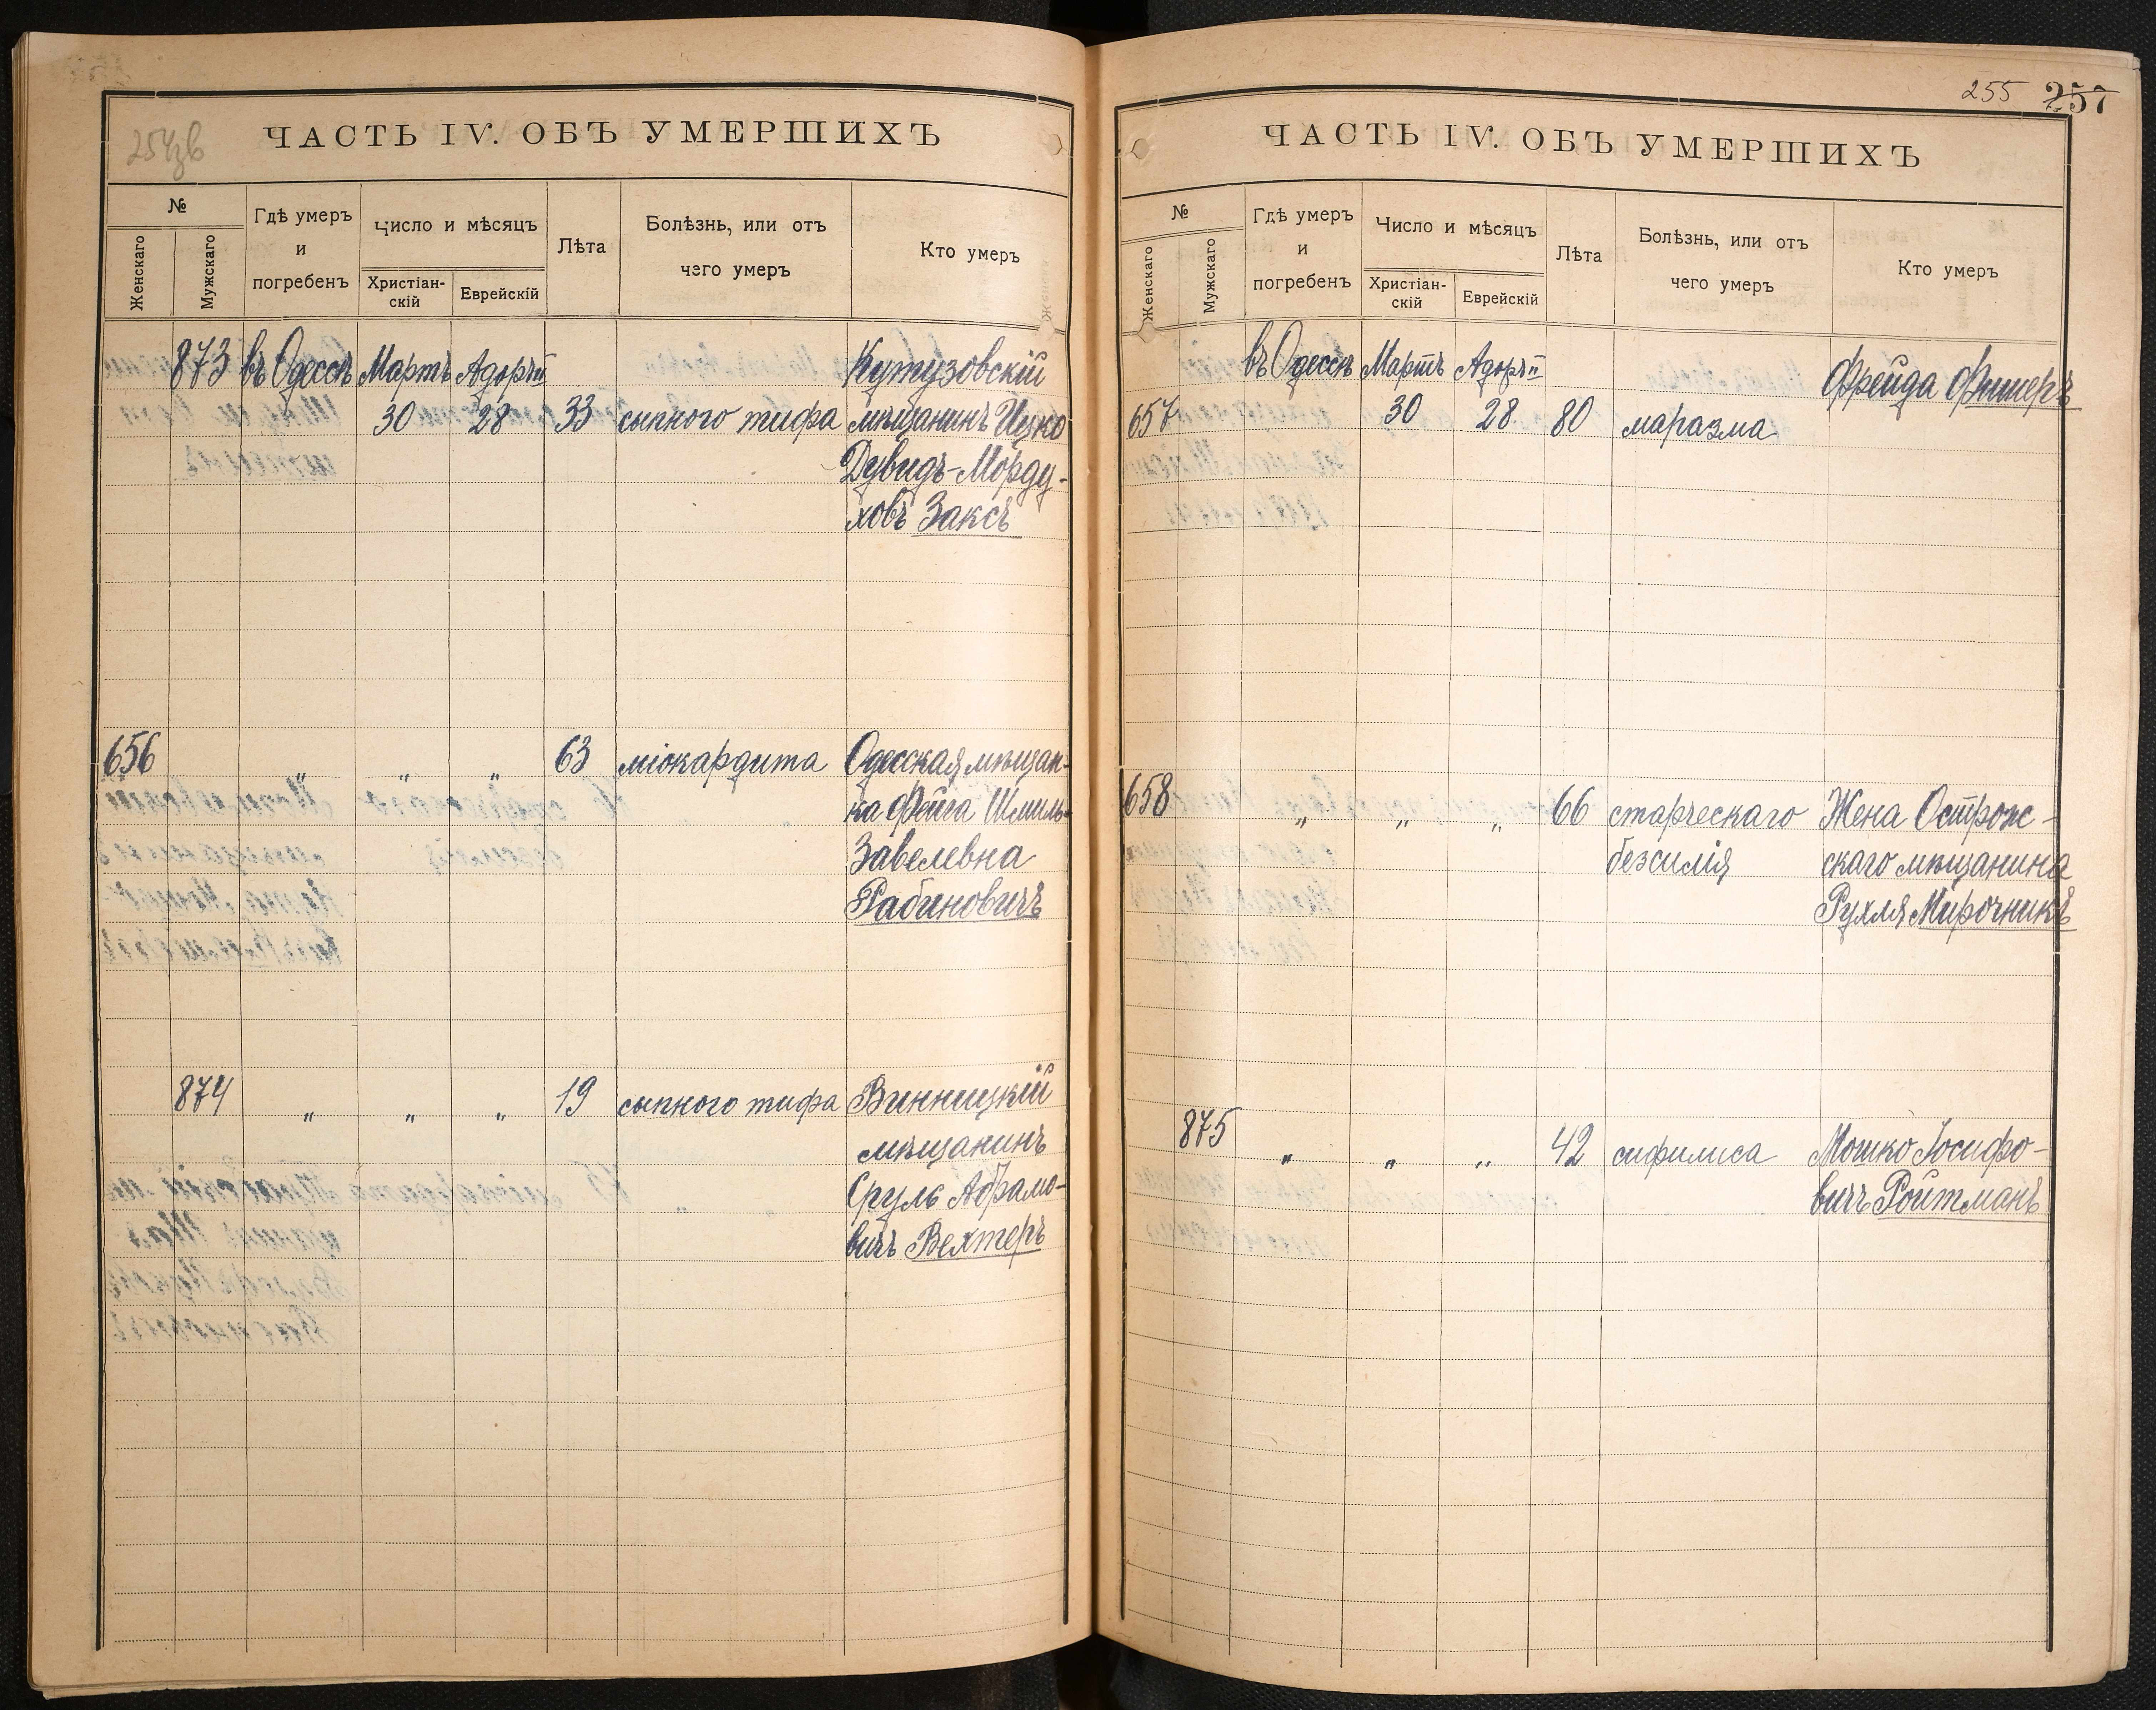 254зв
ЧАСТЬ IV. ОБЪ УМЕРШИХЪ
№
Женскаго
Мужскаго
Гдѣ умеръ
и
погребенъ
Число и мѣсяцъ
Христіан-
скій
Еврейскій
Лѣта
Болѣзнь, или отъ
чего умеръ
Кто умеръ
873 въ Одессѣ Мартъ Адоръ II Кутузовскій
30 28 33 сыпного тифа мѣщанинъ Ицко
Дувидъ-Морду-
ховъ Заксъ
656 " " " 63 міокардита Одесская мѣщан-
ка Фейга Шмиль-
Завелевна
Рабиновичъ
874 " " " 19 сыпного тифа Винницкій
мѣщанинъ
Сруль Абрамо-
вичъ Вехтеръ
255 257
ЧАСТЬ IV. ОБЪ УМЕРШИХЪ
№
Женскаго
Мужскаго
Гдѣ умеръ
и
погребенъ
Число и мѣсяцъ
Христіан-
скій
Еврейскій
Лѣта
Болѣзнь, или отъ
чего умеръ
Кто умеръ
въ Одессѣ Мартъ Адоръ II Фрейда Фишеръ
657 30 28 80 маразма
658 " " " 66 старческаго Жена Острож-
безсилія скаго мѣщанина
Рухля Мирочникъ
875 " " " 42 сифилиса Мошко Іосифо-
вичъ Ройтманъ